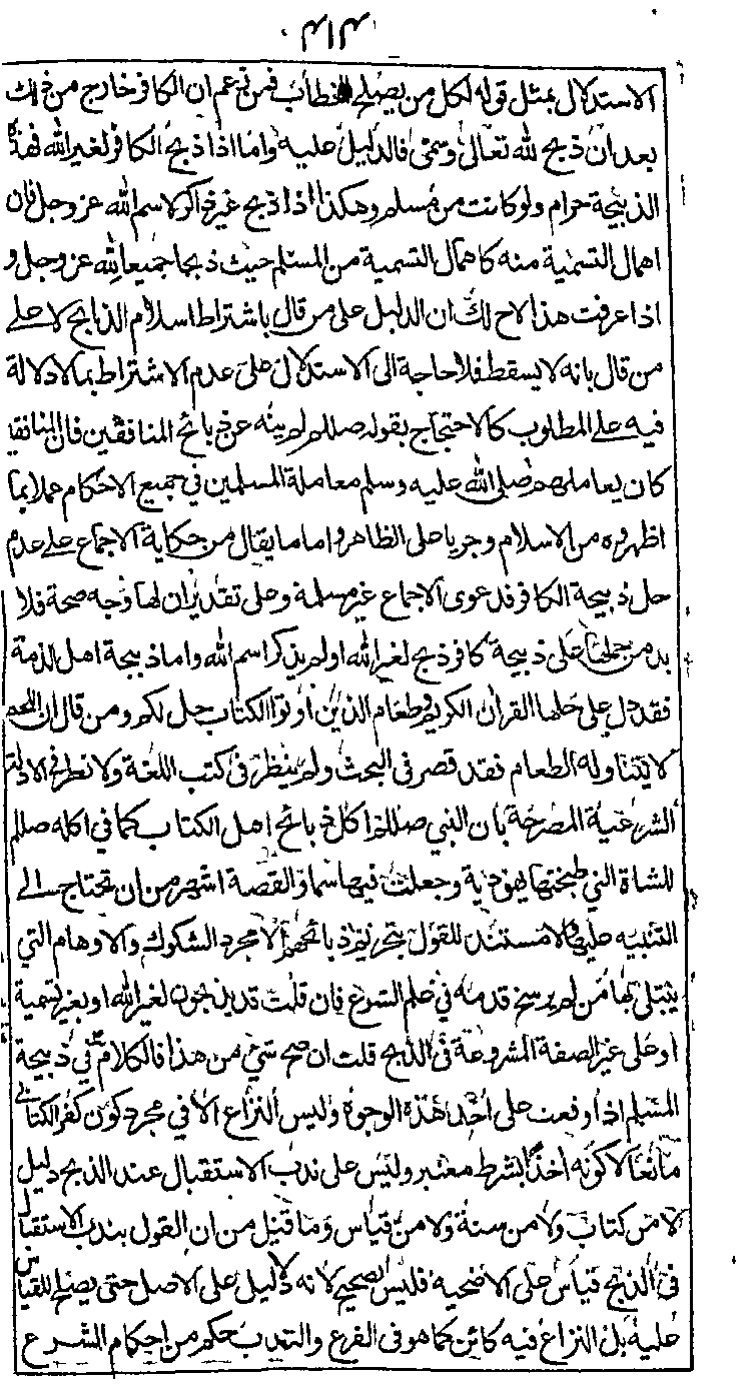 الاستدلال بمثل قوله لكل من يصلح للخطاب فمن زعم ان الكافر خارج من ذلك
بعد ان ذبح لله تعالى وسمى فالدليل عليه واما اذا ذبح الكافر لغير الله فهذه
الذبيحة حرام ولو كانت من مسلم وهكذا اذا ذبح غير ذاكر لاسم الله عز وجل فان
اهمال التسمية منه كاهمال التسمية من المسلم حيث ذبحا جميعا لله عز وجل و
اذا عرفت هذا لاح لك ان الدليل على من قال باشتراط اسلام الذابح لا على
من قال بانه لا يسقط فلا حاجة الى الاستدلال على عدم الاشتراط بما لا دلالة
فيه على المطلوب كالاحتجاج بقوله صللم لم ينه عن ذبائح المنافقين فان المنافقين
كان يعاملهم صلى الله عليه وسلم معاملة المسلمين في جميع الاحكام عملا بما
اظهروه من الاسلام وجريا على الظاهر واما ما يقال من حكاية الاجماع على عدم
حل ذبيحة الكافر فدعوى الاجماع غير مسلمة وعلى تقدير ان لها وجه صحة فلا
بد من حملها على ذبيحة كافر ذبح لغير الله او لم يذكر اسم الله واما ذبيحة اهل الذمة
فقد دل على حلها القران الكريم وطعام الذين اوتوا الكتاب حل لكم ومن قال ان اللحم
لا يتناوله الطعام فقد قصر في البحث ولم ينظر في كتب اللغة ولا نظر في الادلة
الشرعية المصرحة بان النبي صللم اكل ذبائح اهل الكتاب كما في اكله صللم
للشاة التي طبختها يهودية وجعلت فيها سما والقصة اشهر من ان تحتاج الى
التنبيه عليها ولا مستند للقول بتحريم ذبائحهم الا مجرد الشكوك والاوهام التي
يبتلى بها من لم يرسخ قدمه في علم الشرع فان قلت قد يذبحون لغير الله او بغير تسمية
او على غير الصفة المشروعة في الذبح قلت ان صح شيء من هذا فالكلام في ذبيحته كالكلام في ذبيحة
المسلم اذا وقعت على احد هذه الوجوه وليس النزاع الا في مجرد كون كفر الكتابي
مانعا لا كونه اخذا بشرط معتبر وليس على ندب الاستقبال عند الذبح دليل
لا من كتاب ولا من سنة ولا من قياس وما قيل من ان القول بندب الاستقبال
في الذبح قياس على الاضحية فليس بصحيح لانه لا دليل على الاصل حتى يصلح للقياس
عليه بل النزاع فيه كائن كما هو في الفرع والندب حكم من احكام الشرع